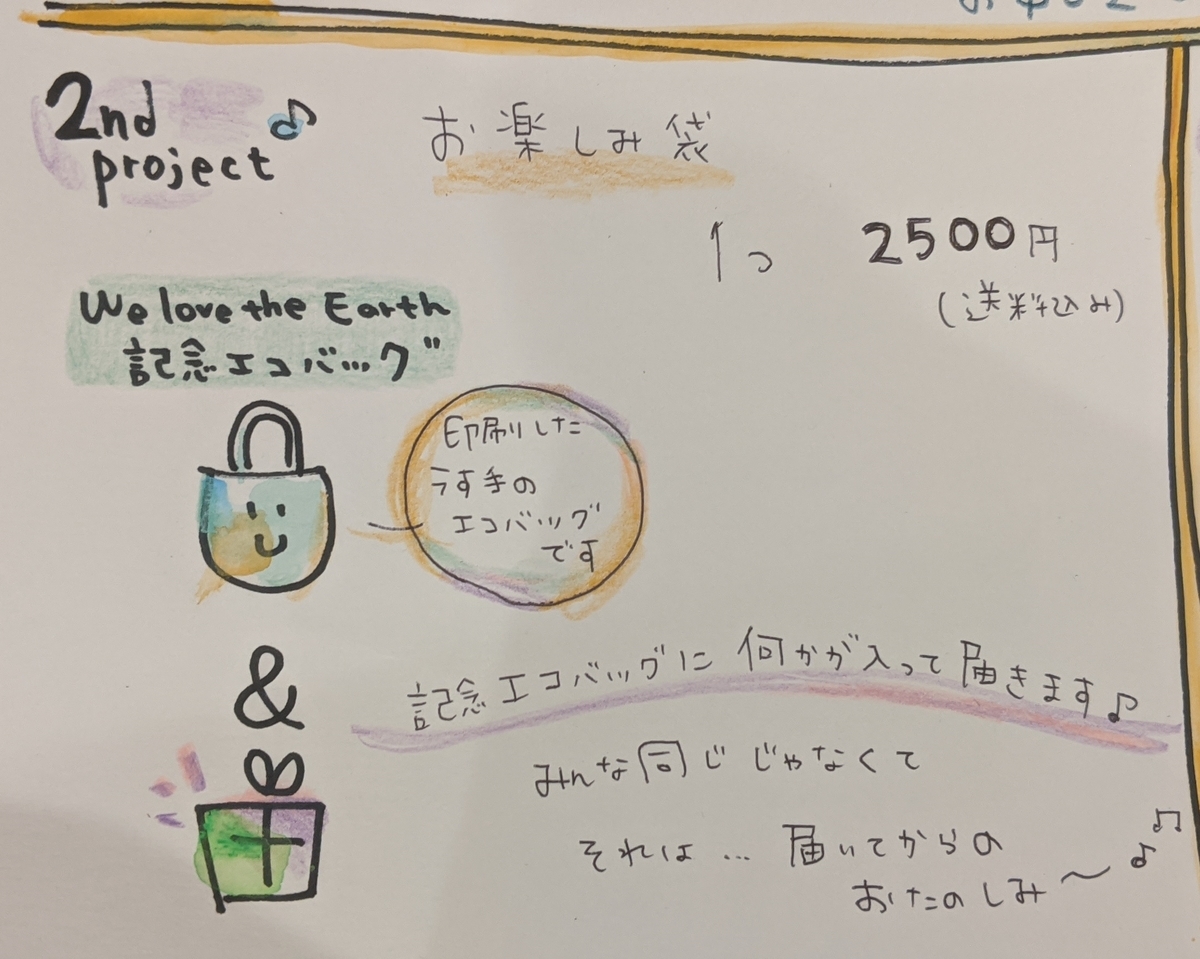 2nd
project ♪
お楽しみ袋
1つ 2500円
(送料込み)
We love the Earth
記念エコバッグ
印刷した
うす手の
エコバッグ
です
&
記念エコバッグに何かが入って届きます♪
みんな同じじゃなくて
それは…届いてからの
おたのしみ〜♪♫